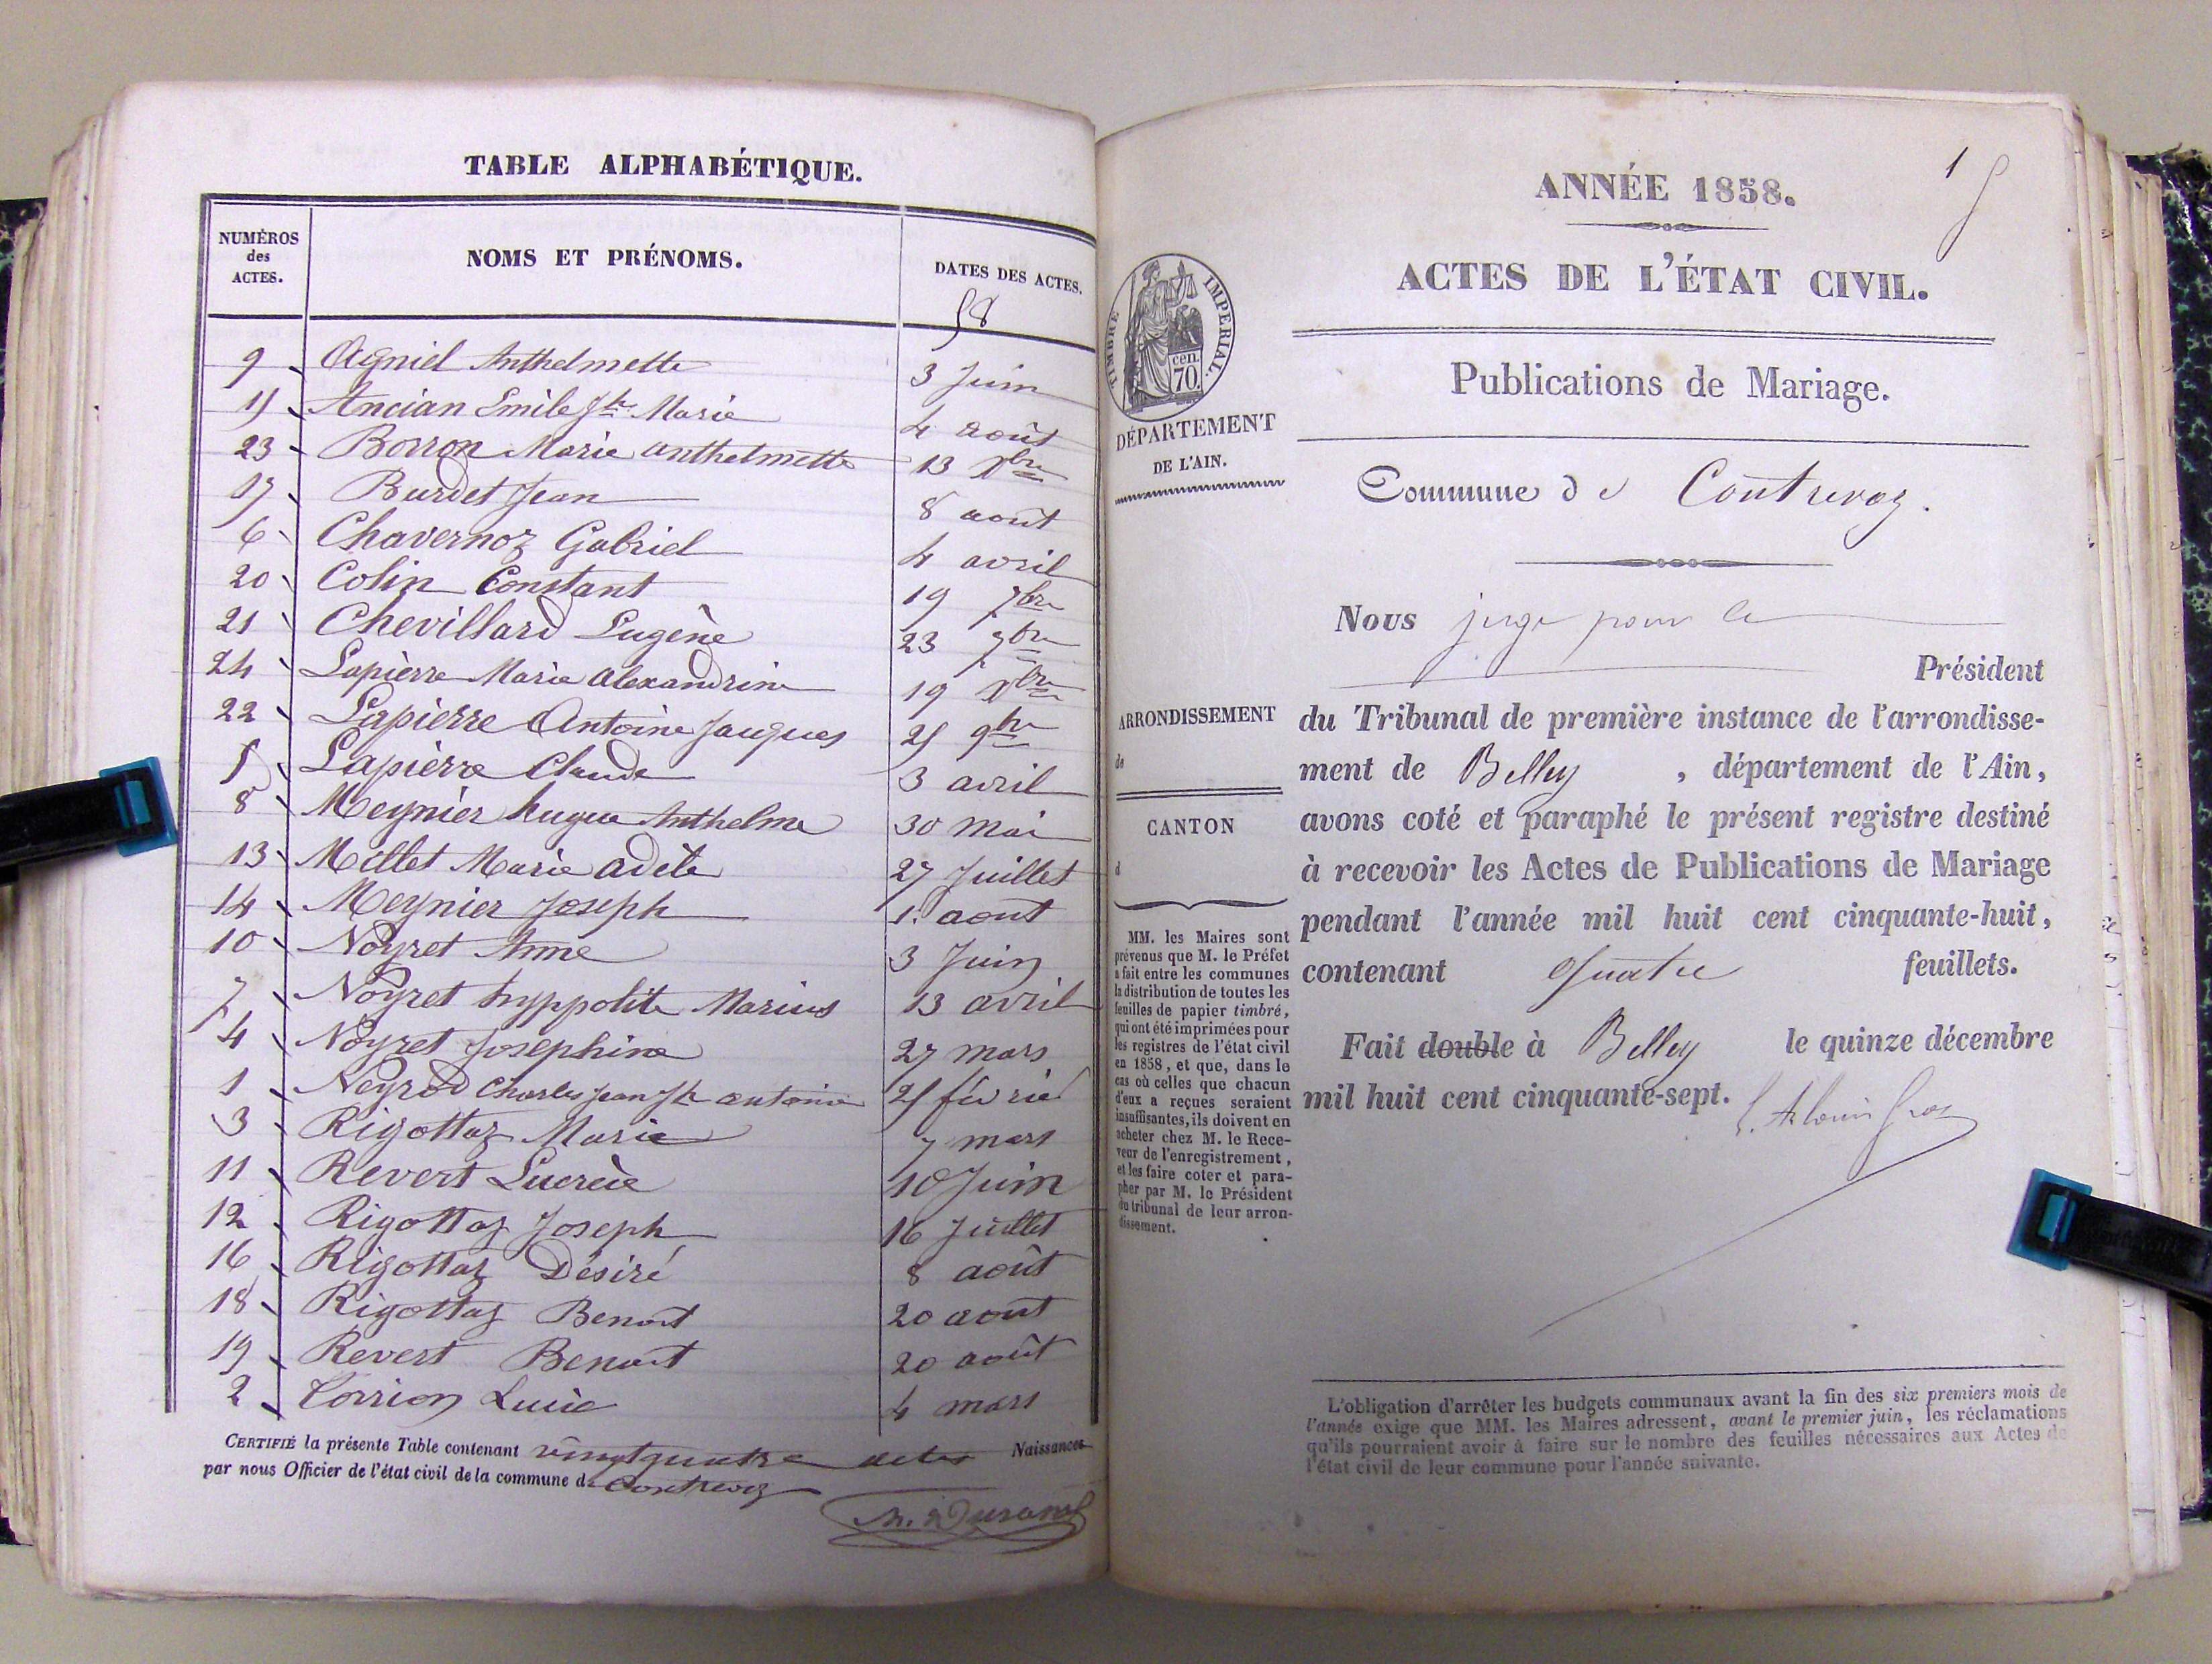 TABLE ALPHABÉTIQUE.
NUMÉROS des ACTES.
NOMS ET PRÉNOMS.
DATES DES ACTES.
58
9 Agniel Anthelmette 3 Juin
15 Ancian Emile Jh Marie 4 août
23 Borron Marie anthelmette 13 Xbre
17 Burdet Jean 8 août
6 Chavernoz Gabriel 4 avril
20 Colin Constant 19 7bre
21 Chevillard Eugène 23 7bre
24 Lapierre Marie Alexandrine 19 Xbre
22 Lapierre Antoine Jacques 25 9bre
5 Lapierre Claude 3 avril
8 Meynier hugue Anthelme 30 mai
13 Millet Marie adèle 27 Juillet
14 Meynier Joseph 1. aout
10 Noyret Anne 3 Juin
7 Noyret hyppolite Marius 13 avril
4 Noyret Josephine 27 mars
1 Neyrod Charles Jean Jh antoine 25 février
3 Rigottaz Marie 7 mars
11 Revert Lucrèce 10 Juin
12 Rigottaz Joseph 16 Juillet
16 Rigottaz Désiré 8 août
18 Rigottaz Benoit 20 aout
19 Revert Benoit 20 août
2 Torrion Lucie 4 mars
CERTIFIÉ la présente Table contenant vingt quatre actes Naissances
par nous Officier de l'état civil de la commune de Contrevoz
Durand
1
ANNÉE 1858.
ACTES DE L'ÉTAT CIVIL.
Publications de Mariage.
TIMBRE IMPERIAL.
cen.
70.
DÉPARTEMENT
DE L'AIN.
Commune de Contrevoz.
Nous juge pour le
Président
du Tribunal de première instance de l'arrondisse-
ment de Belley , département de l'Ain,
avons coté et paraphé le présent registre destiné
à recevoir les Actes de Publications de Mariage
pendant l'année mil huit cent cinquante-huit,
contenant Quatre feuillets.
Fait double à Belley le quinze décembre
mil huit cent cinquante-sept.
ARRONDISSEMENT
de
CANTON
d
MM. les Maires sont
prévenus que M. le Préfet
a fait entre les communes
la distribution de toutes les
feuilles de papier timbré,
qui ont été imprimées pour
les registres de l'état civil
en 1858, et que, dans le
cas où celles que chacun
d'eux a reçues seraient
insuffisantes, ils doivent en
acheter chez M. le Rece-
veur de l'enregistrement,
et les faire coter et para-
pher par M. le Président
du tribunal de leur arron-
dissement.
L'obligation d'arrêter les budgets communaux avant la fin des six premiers mois de
l'année exige que MM. les Maires adressent, avant le premier juin, les réclamations
qu'ils pourraient avoir à faire sur le nombre des feuilles nécessaires aux Actes de
l'état civil de leur commune pour l'année suivante.